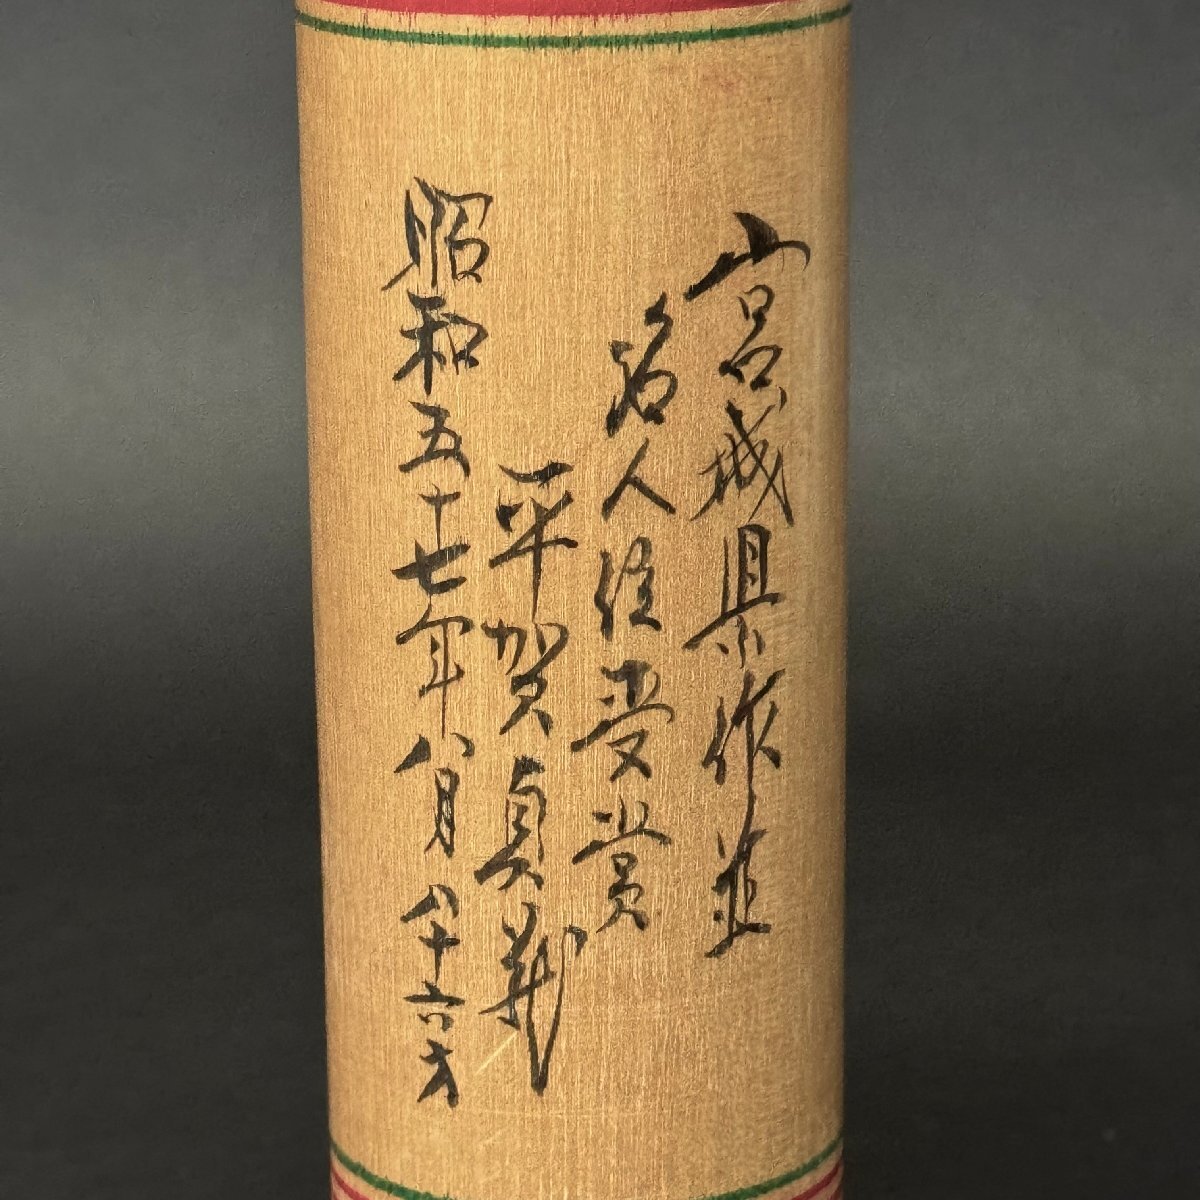 宮城県作並
名人位受賞
平賀貞義
昭和五十七年八月八十六才